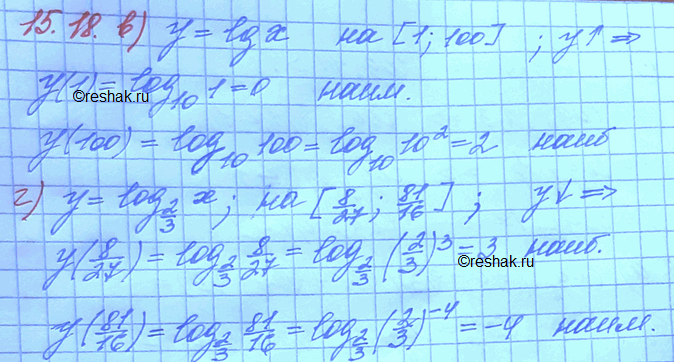 15.18. в) y = lg x на [1; 100] ; y↑ ⇒
y(1) = log₁₀ 1 = 0 наим.
©reshak.ru
y(100) = log₁₀ 100 = log₁₀ 10² = 2 наиб
г) y = log_{2/3} x; на [8/27; 81/16] ; y↓ ⇒
y(8/27) = log_{2/3} 8/27 = log_{2/3} (2/3)³ = 3 наиб.
©reshak.ru
y(81/16) = log_{2/3} 81/16 = log_{2/3} (2/3)⁻⁴ = -4 наим.